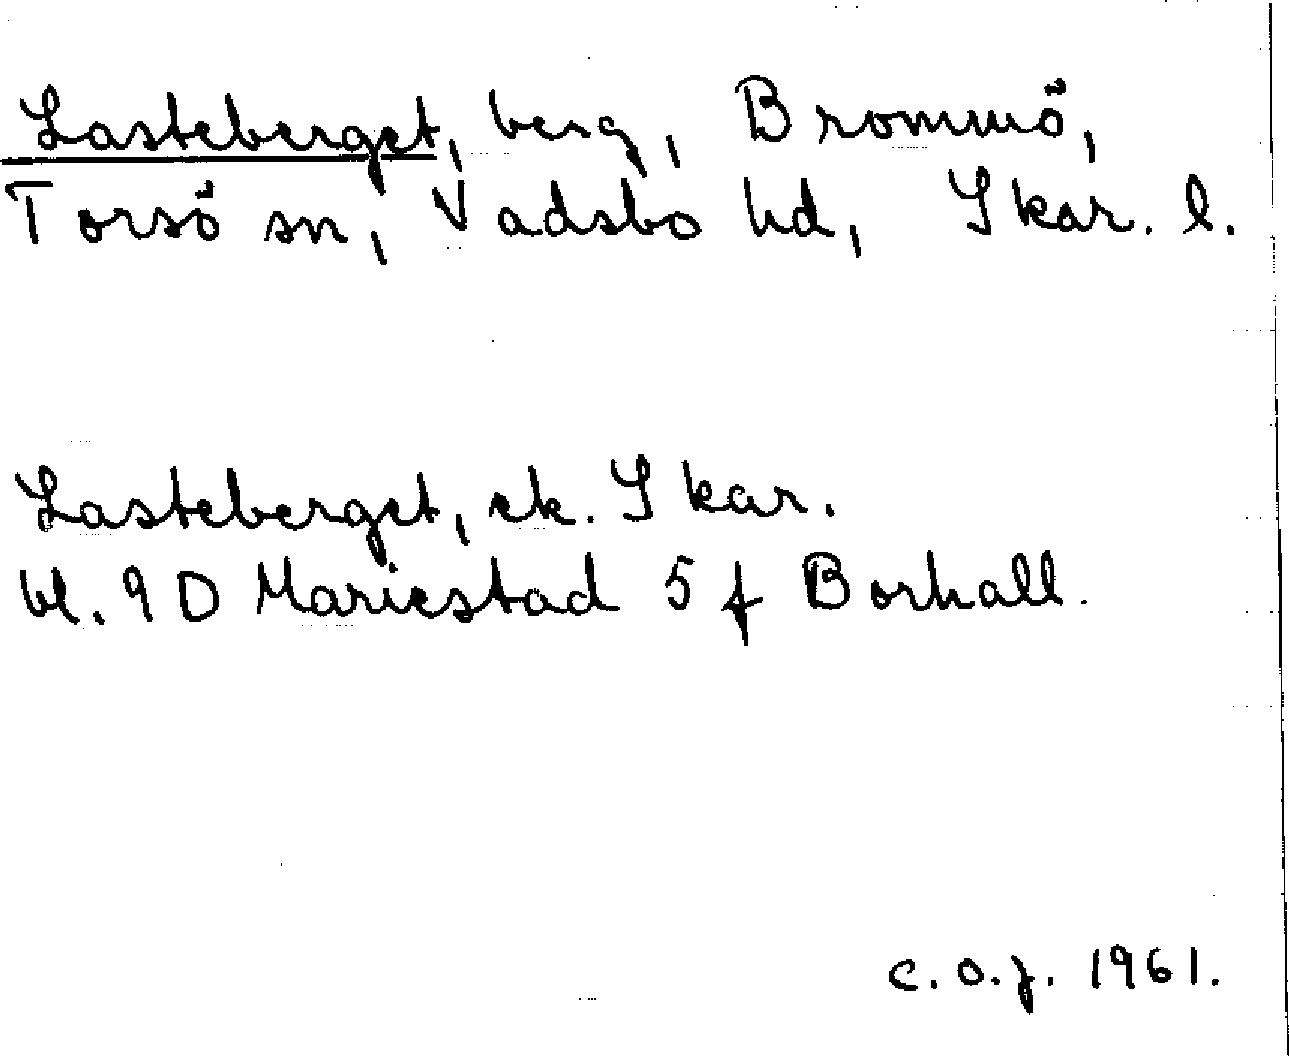 Lasteberget, berg, Brommö,
Torsö sn, Vadsbo hd, Skar. l.
Lasteberget, ek. Skar.
bl. 9 D Mariestad 5 f Borhall.
C. O. J. 1961.